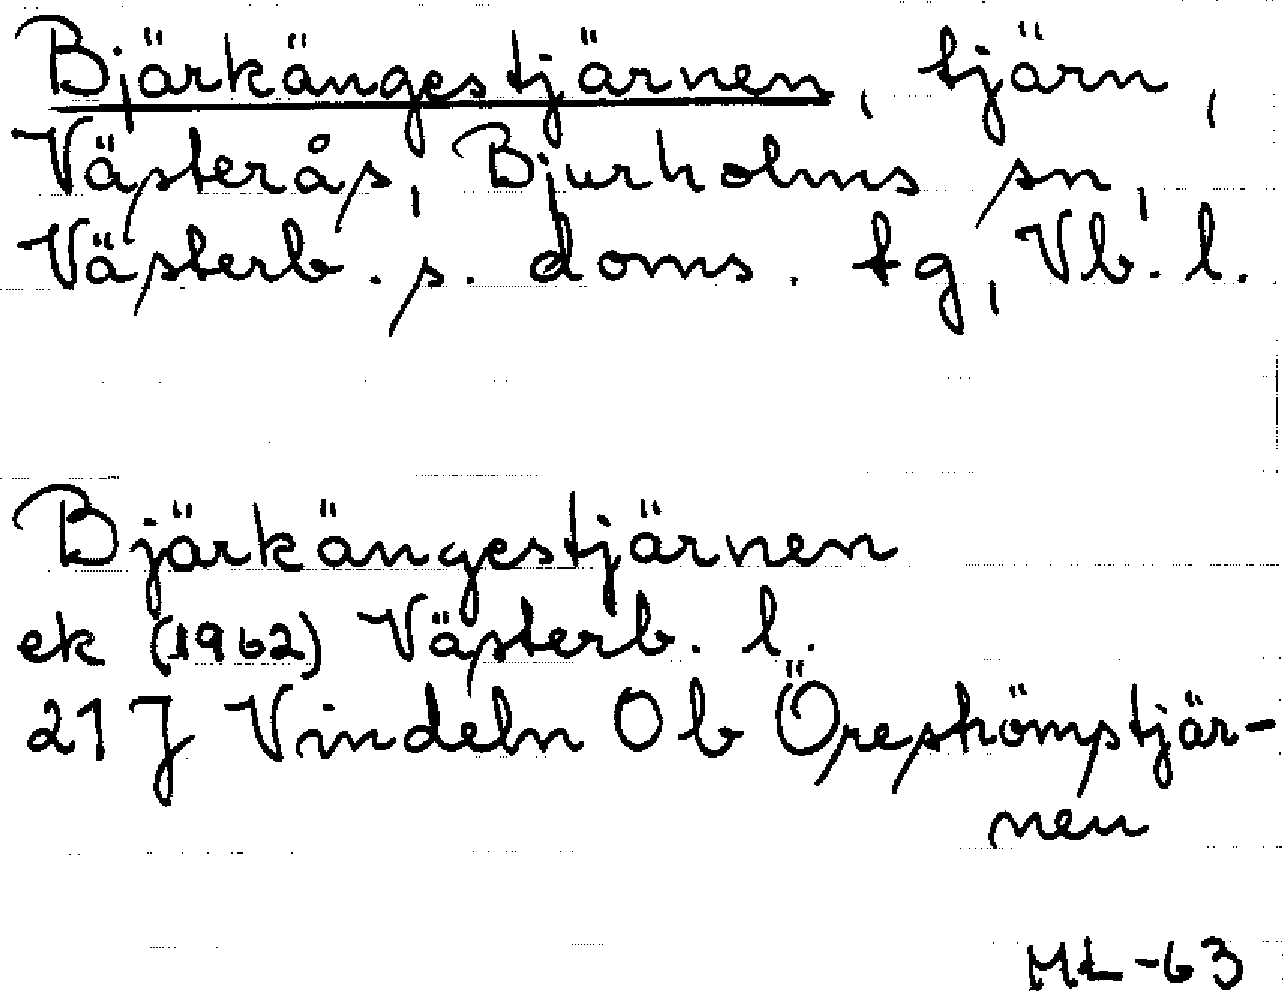 Bjärkängestjärnen, tjärn,
Västerås, Bjurholms sn,
Västerb. s. doms. tg, Vb. l.
Bjärkängestjärnen
ek (1962) Västerb. l.
21 J Vindeln 0 b Öreskömstjär-
nen
ML-63